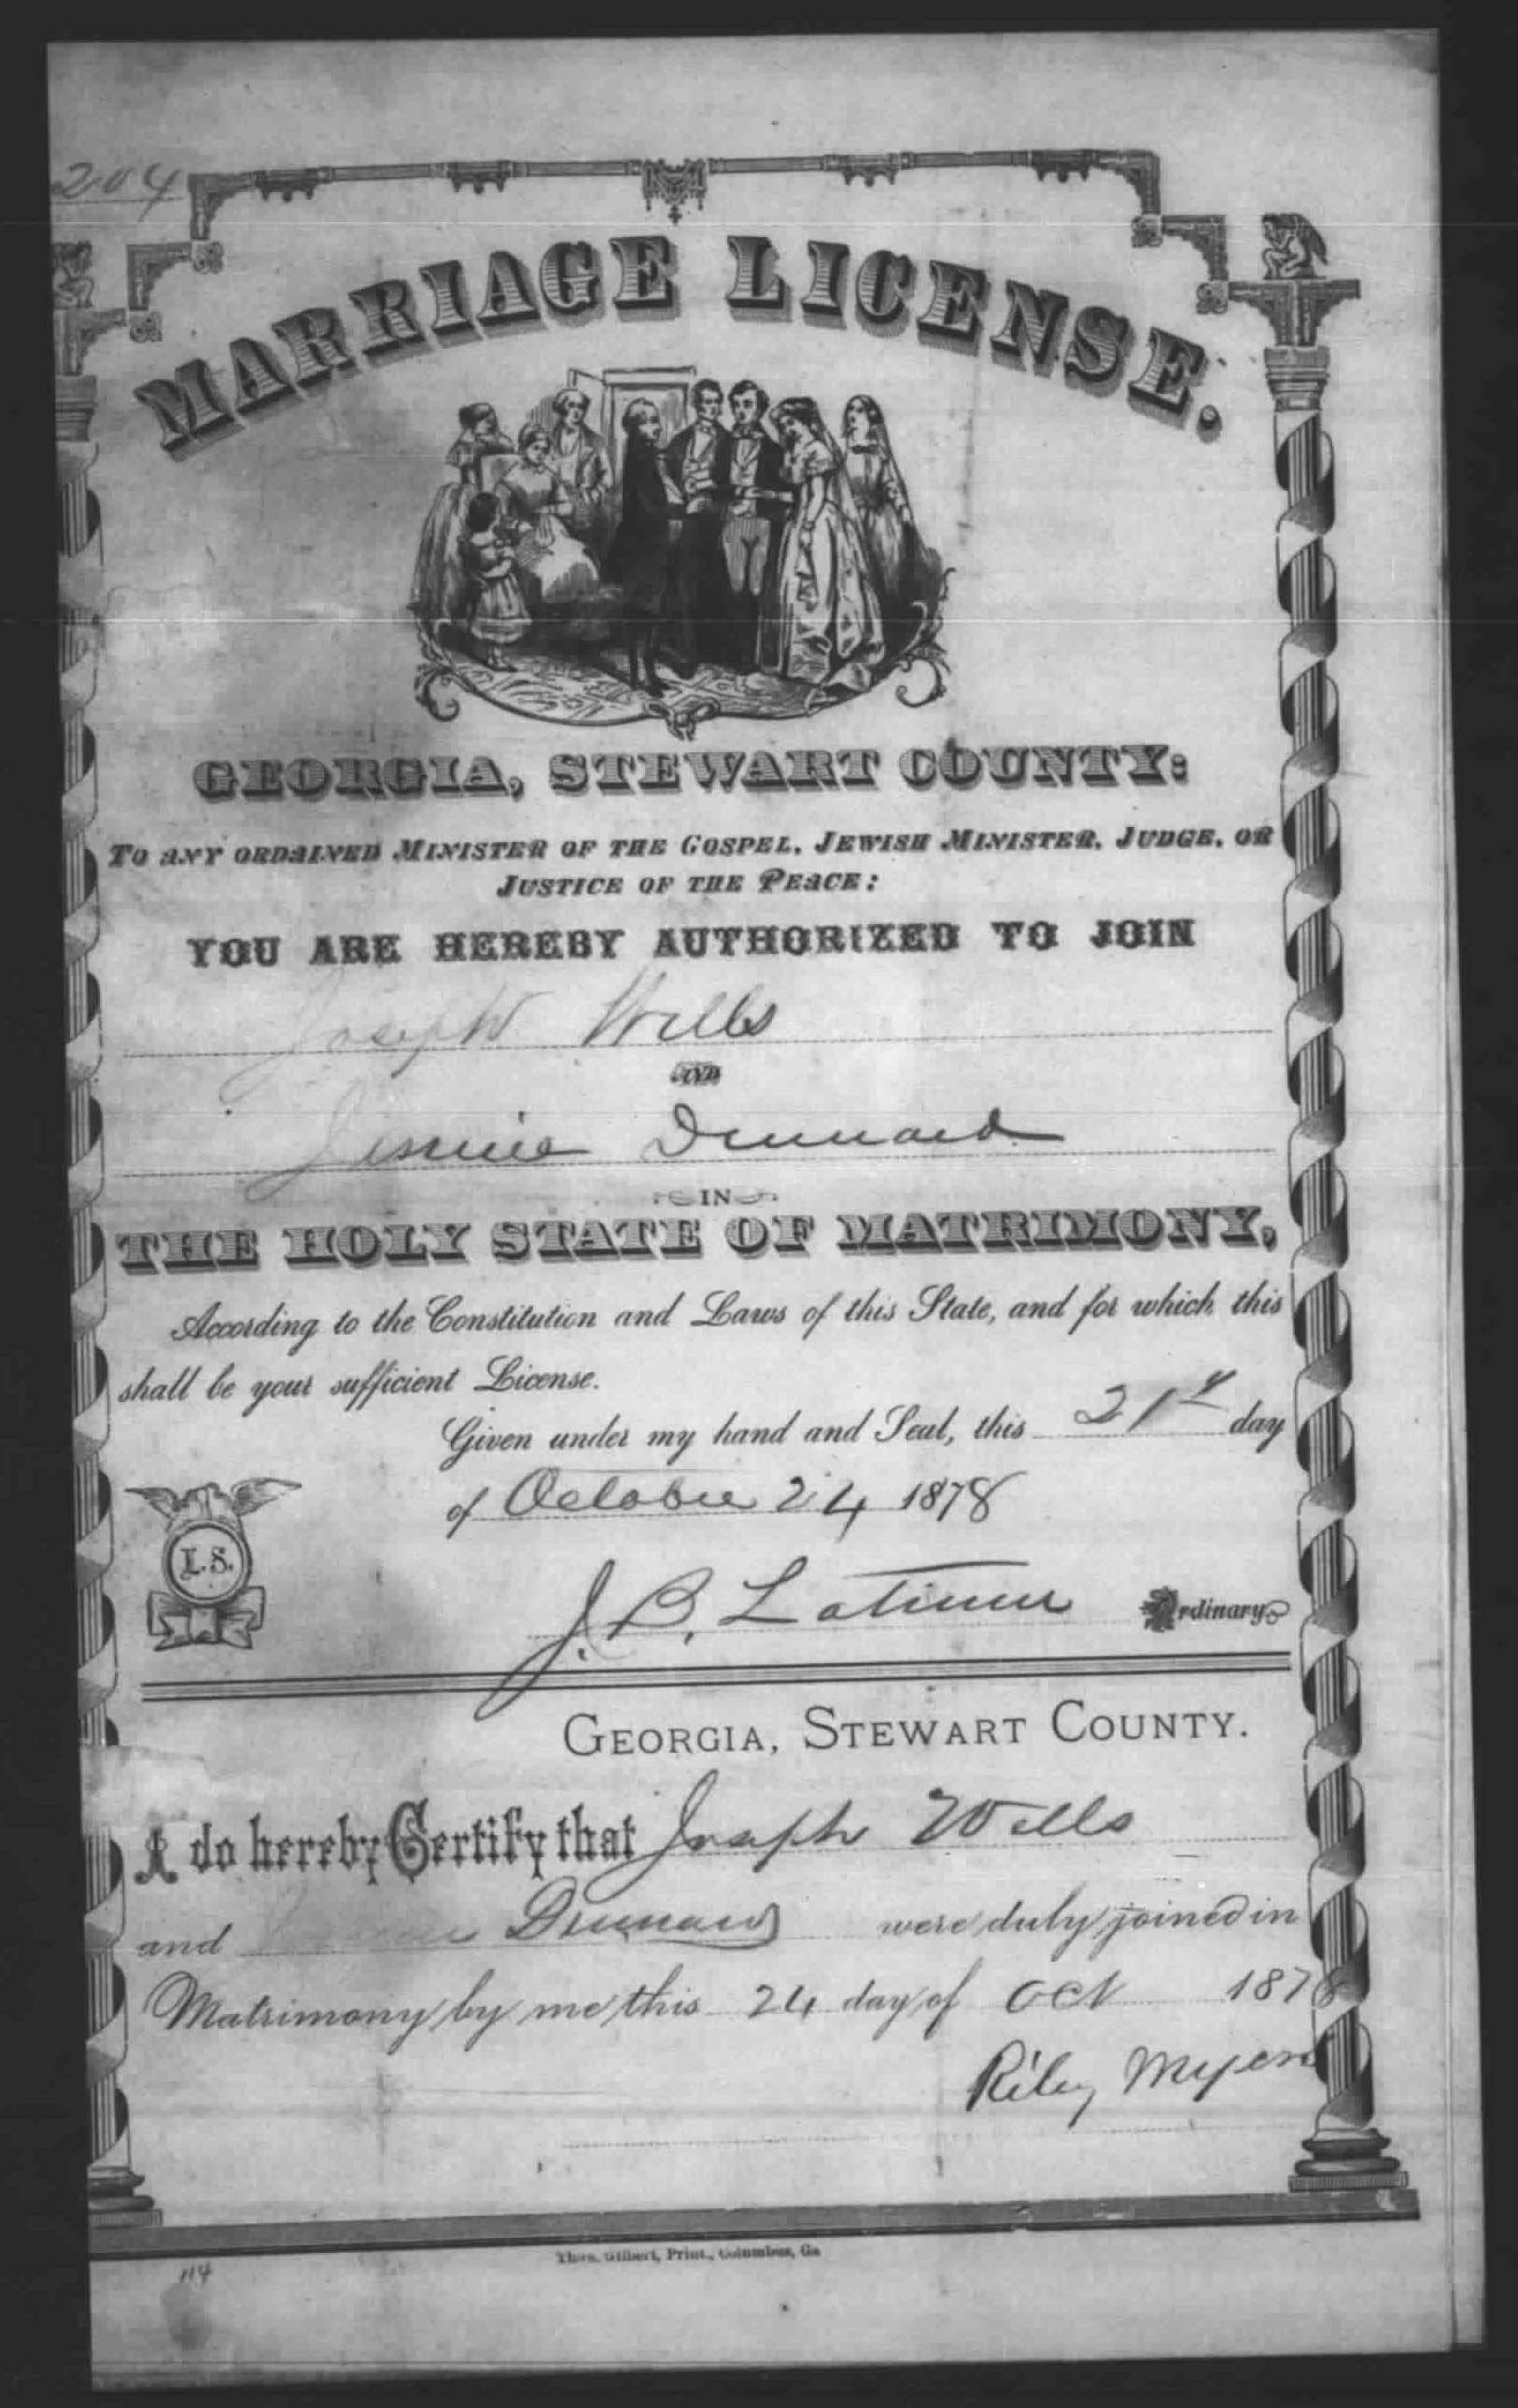 204
MARRIAGE LICENSE.
GEORGIA, STEWART COUNTY:
TO ANY ORDAINED MINISTER OF THE GOSPEL, JEWISH MINISTER, JUDGE, OR
JUSTICE OF THE PEACE:
YOU ARE HEREBY AUTHORIZED TO JOIN
Joseph Wells
AND
Dennard
IN
THE HOLY STATE OF MATRIMONY,
According to the Constitution and Laws of this State, and for which this
shall be your sufficient License.
Given under my hand and Seal, this 21st day
of October 24 1878
L.S.
J. B. Latimer Ordinary
GEORGIA, STEWART COUNTY.
I do hereby Certify that Joseph Wells
and Dennard were duly joined in
Matrimony by me this 24 day of Oct 1878
Riley Myers
Thos. Gilbert, Print., Columbus, Ga
114